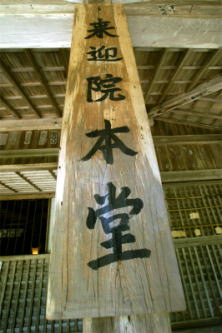 来迎院本堂